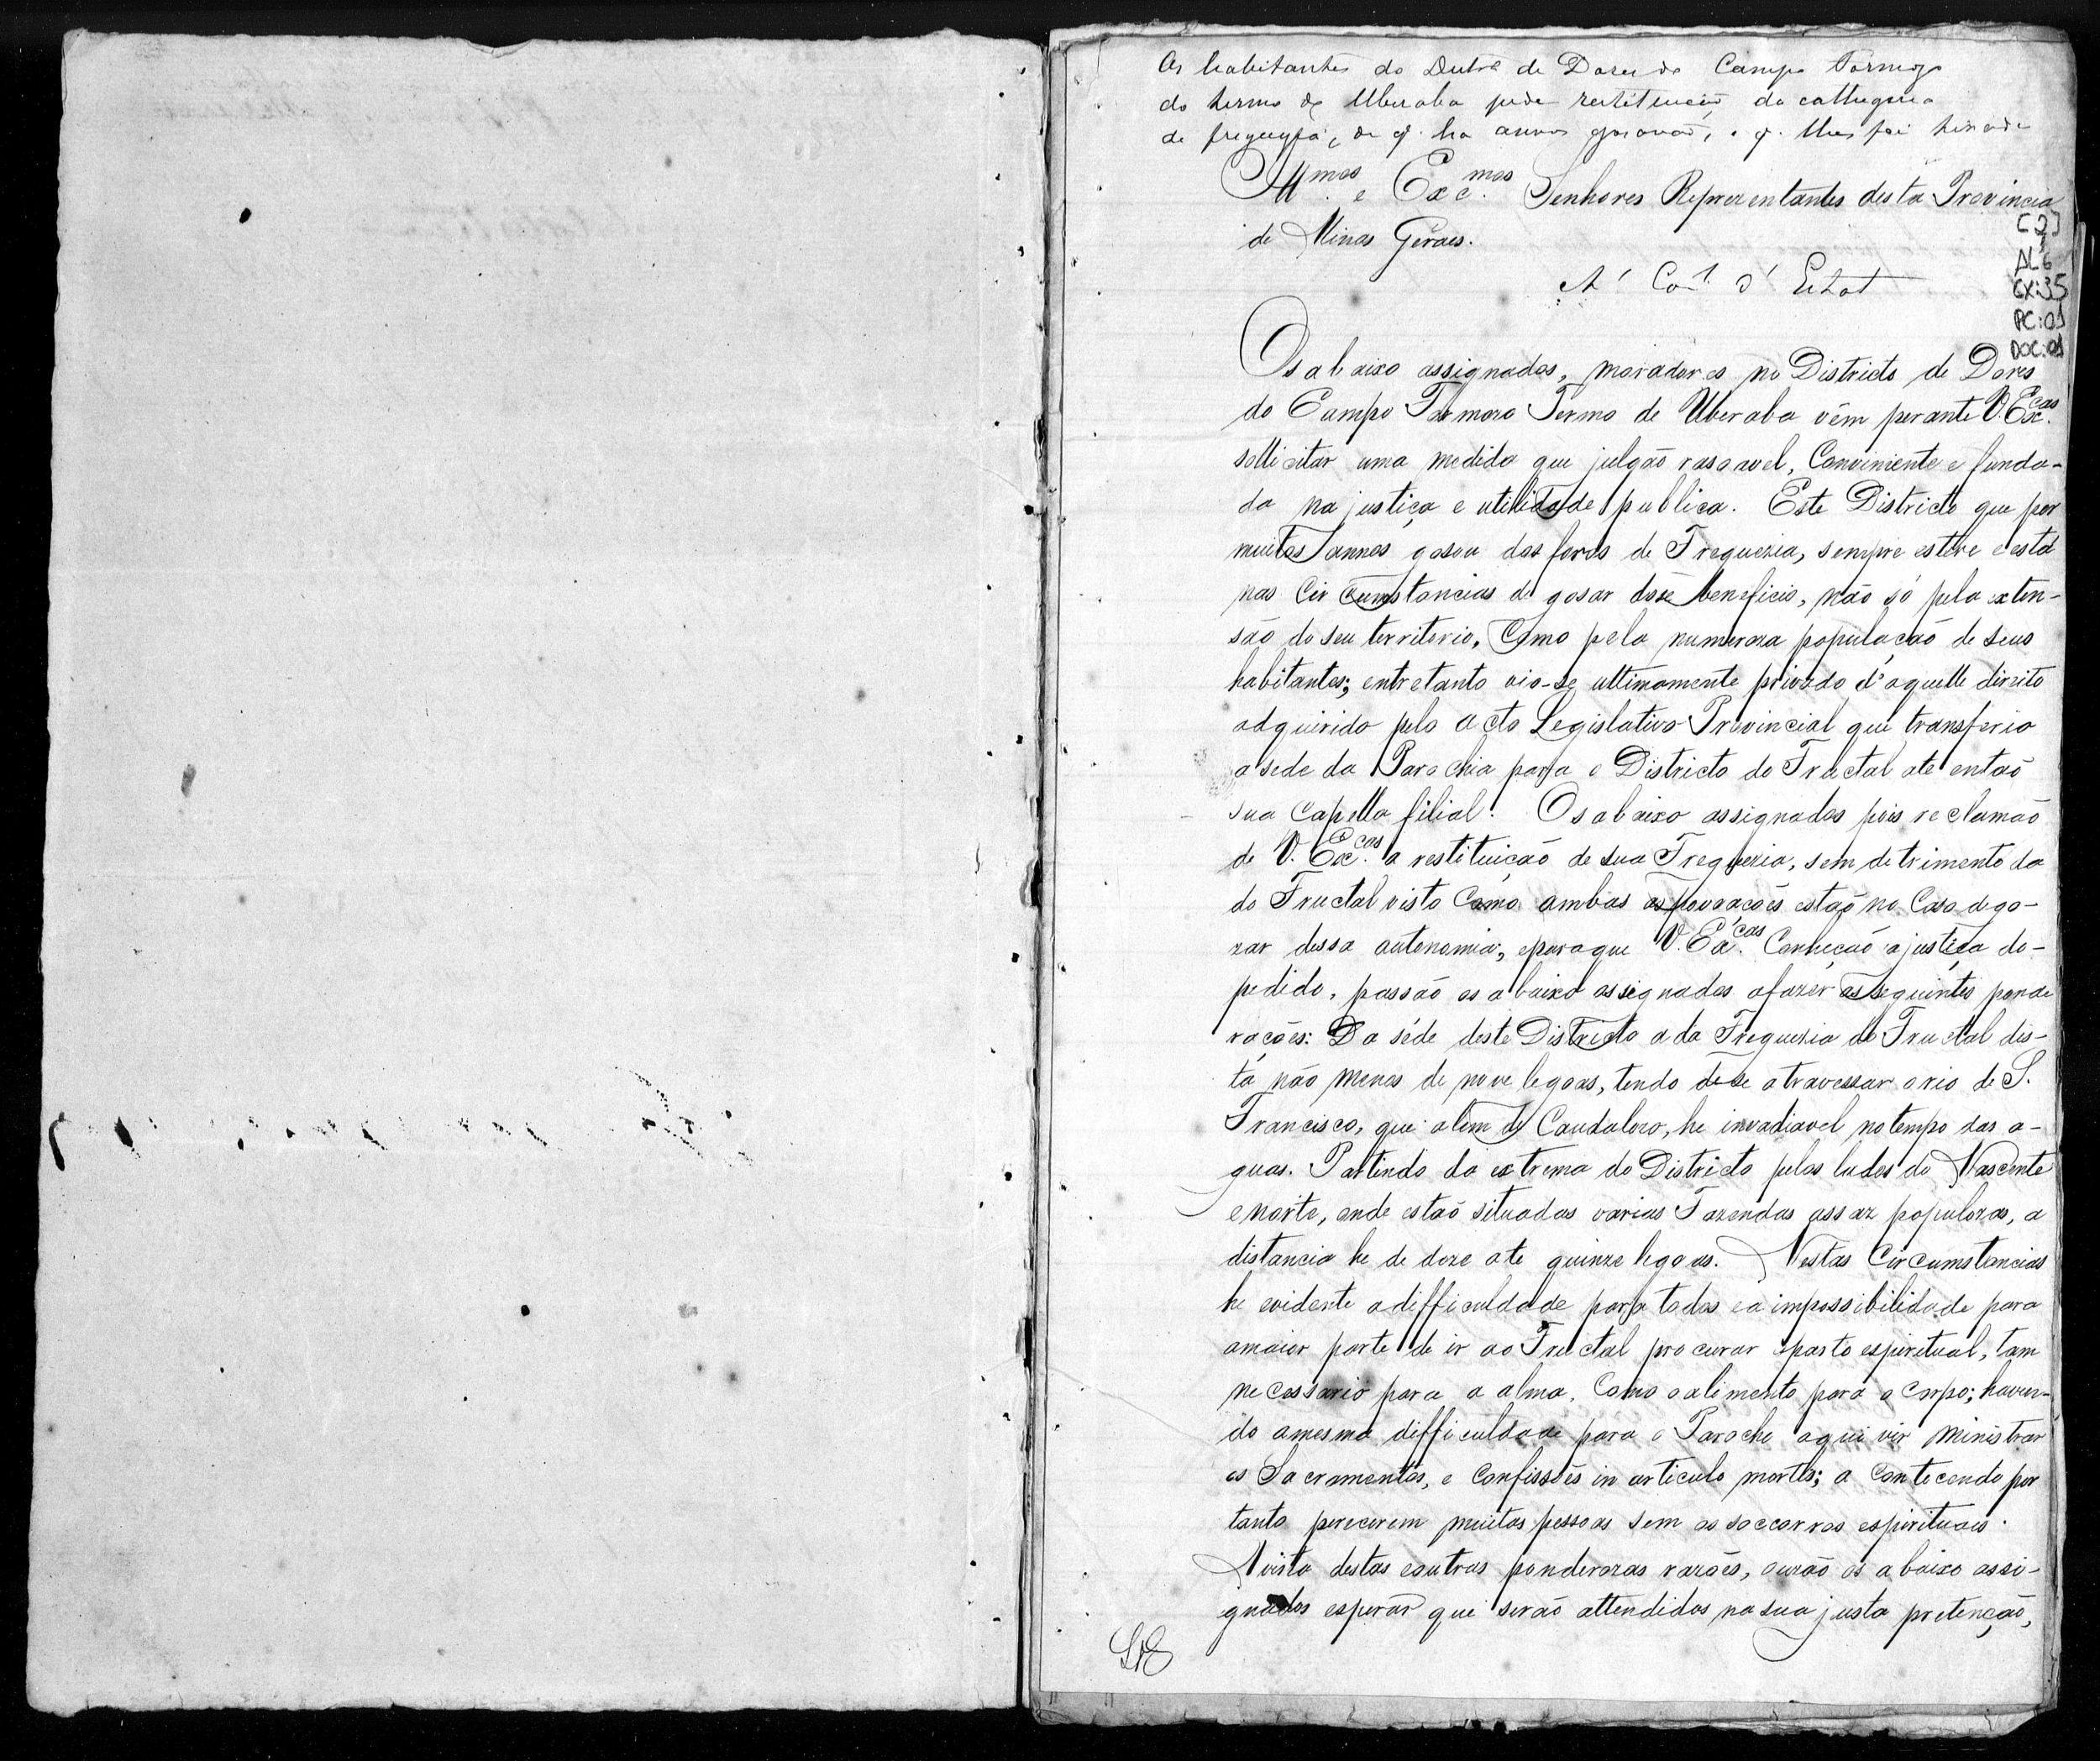 Os habitantes do Distr.º de Dores do Campo Formozo
do termo de Uberaba pedem restituição da cathegoria
de freguezia, de q. ha annos gosavaõ, e q. lhes foi tirada
Ill.mos e Exc.mos Senhores Reprezentantes desta Provincia
de Minas Geraes.
[2]
AL 6
CX: 35
PC: 01
DOC: 01
Á Com. d'Estat
Os abaixo assignados, moradores no Districto de Dores
do Campo Formozo Termo de Uberaba vêm perante V. Exc.cas
sollicitar uma medida que julgão rasoavel, Conveniente e funda-
da na justiça e utilidade publica. Este Districto que por
muitos annos gosou dos foros de Freguezia, sempre esteve e está
nas Circumstancias de gosar desse beneficio, não só pela exten-
são do seu territorio, Como pela numeroza populaçaõ de seus
habitantes; entretanto vio-se ultimamente privado d'aquelle direito
adquirido pelo acto Legislativo Provincial que transferio
a sede da Parochia para o Districto do Fructal até entaõ
sua Capella filial. Os abaixo assignados pois reclamaõ
de V. Exc.cas a restituiçaõ de sua Freguezia, sem detrimento da
do Fructal visto Como ambas as povoações estaõ no Caso de go-
zar dessa autonomia; e para que V. Ex.cas Conheçaõ a justiça do-
pedido, passaõ os abaixo assignados a fazer as seguintes ponde
rações: Da séde deste Districto a da Freguezia do Fructal dis-
ta não menos de nove legoas, tendo de se atravessar o rio de S.
Francisco, que alem de Caudalozo, he invadiavel no tempo das a-
guas. Partindo da extrema do Districto pelos lados do Nascente
e norte, onde estaõ situadas varias Fazendas assaz populozas, a
distancia he de doze até quinze legoas. Nestas Circumstancias
he evidente a difficuldade para todos e a impossibilidade para
a maior parte de ir ao Fructal procurar o pasto espiritual, tam
necessario para a alma, Como o alimento para o Corpo; haven-
do a mesma difficuldade para o Parocho aqui vir ministrar
os Sacramentos, e Confissões in articulo mortis; a Contecendo por
tanto perecerem muitas pessoas sem os soccorros espirituaes.
Á vista destas e outras ponderozas razões, ouzão os abaixo assi-
gnados esperar que serão attendidos na sua justa pretenção,